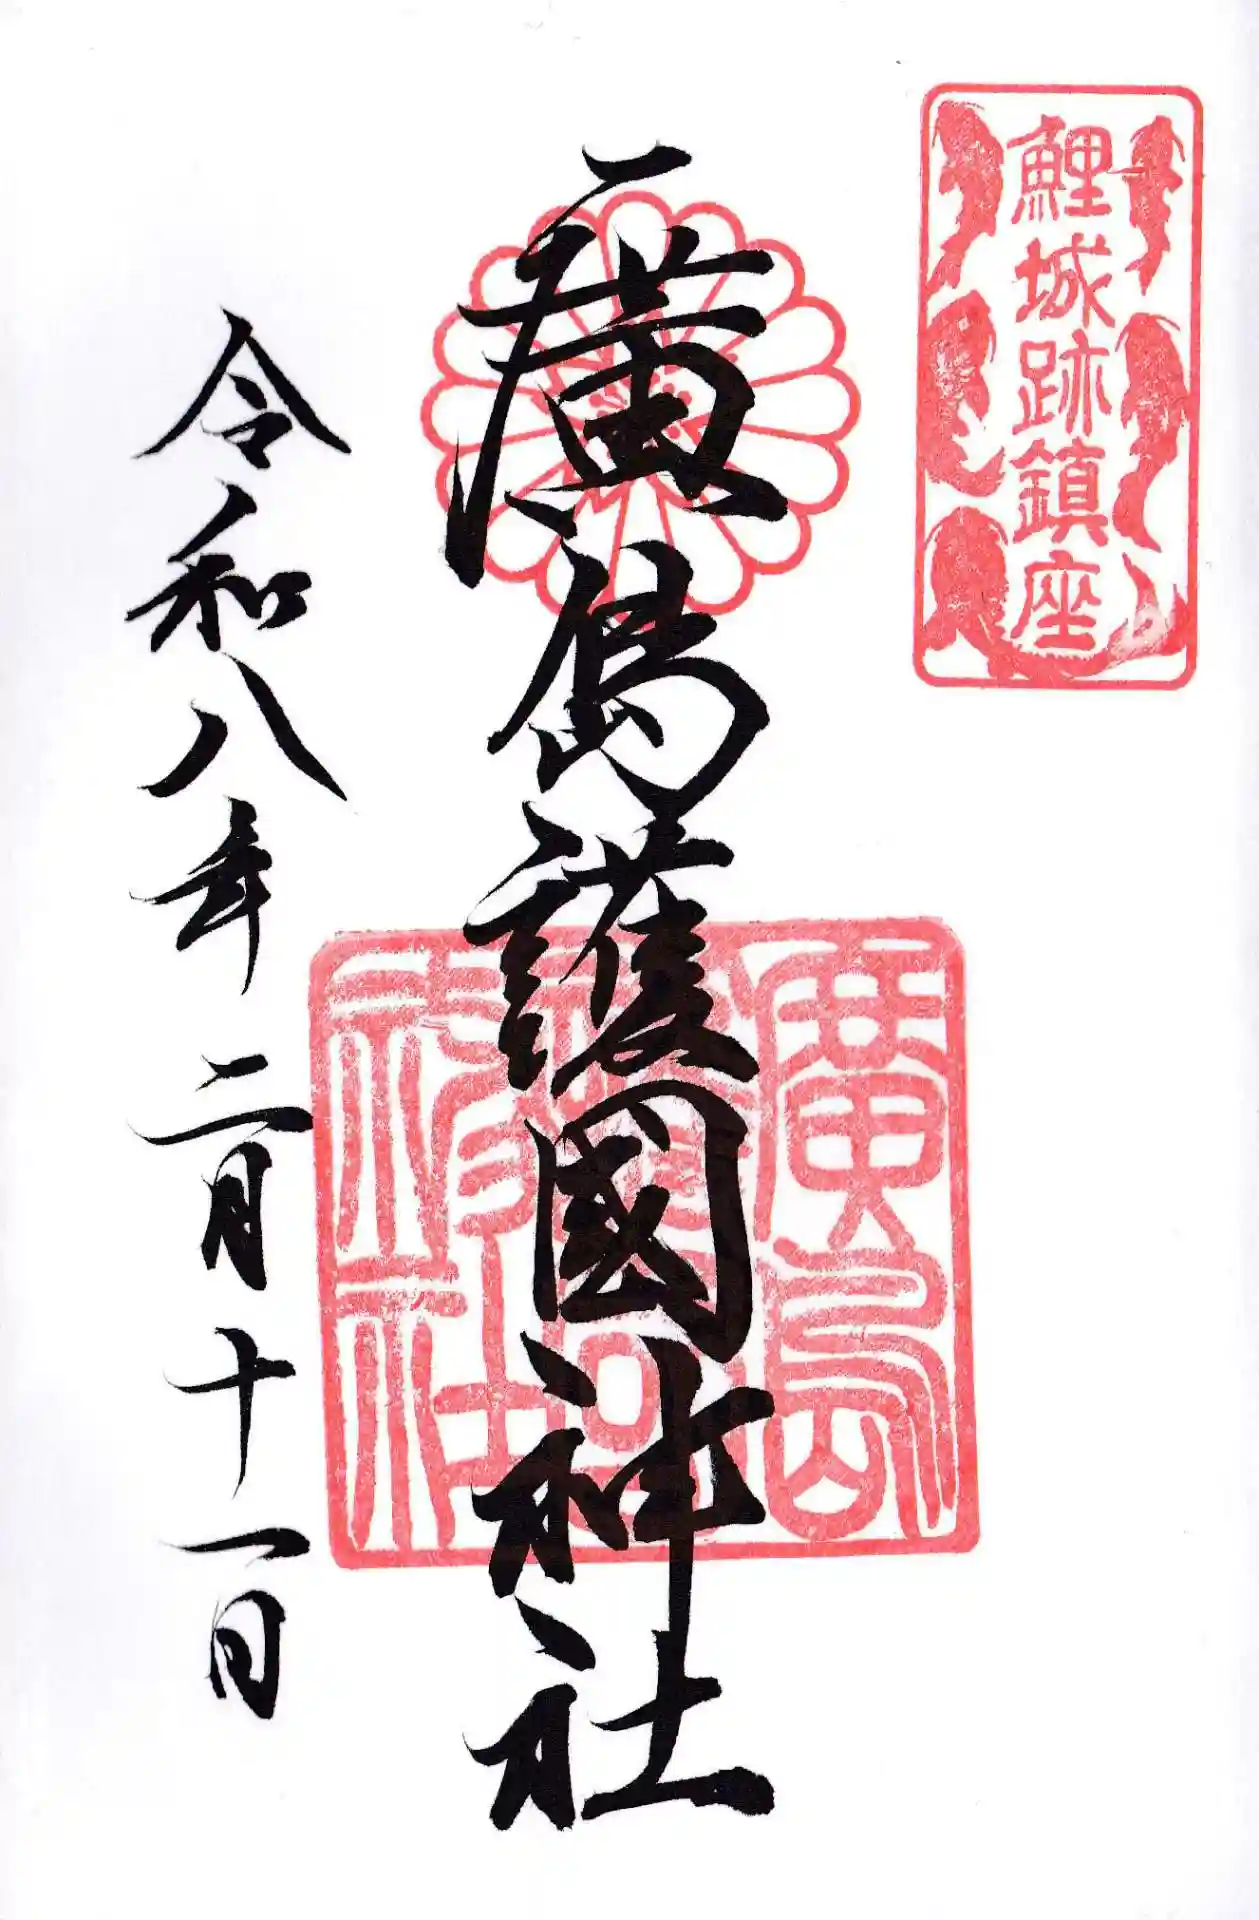 鯉城跡鎮座
廣島護國神社
廣島
護國
神社
令和八年二月十一日